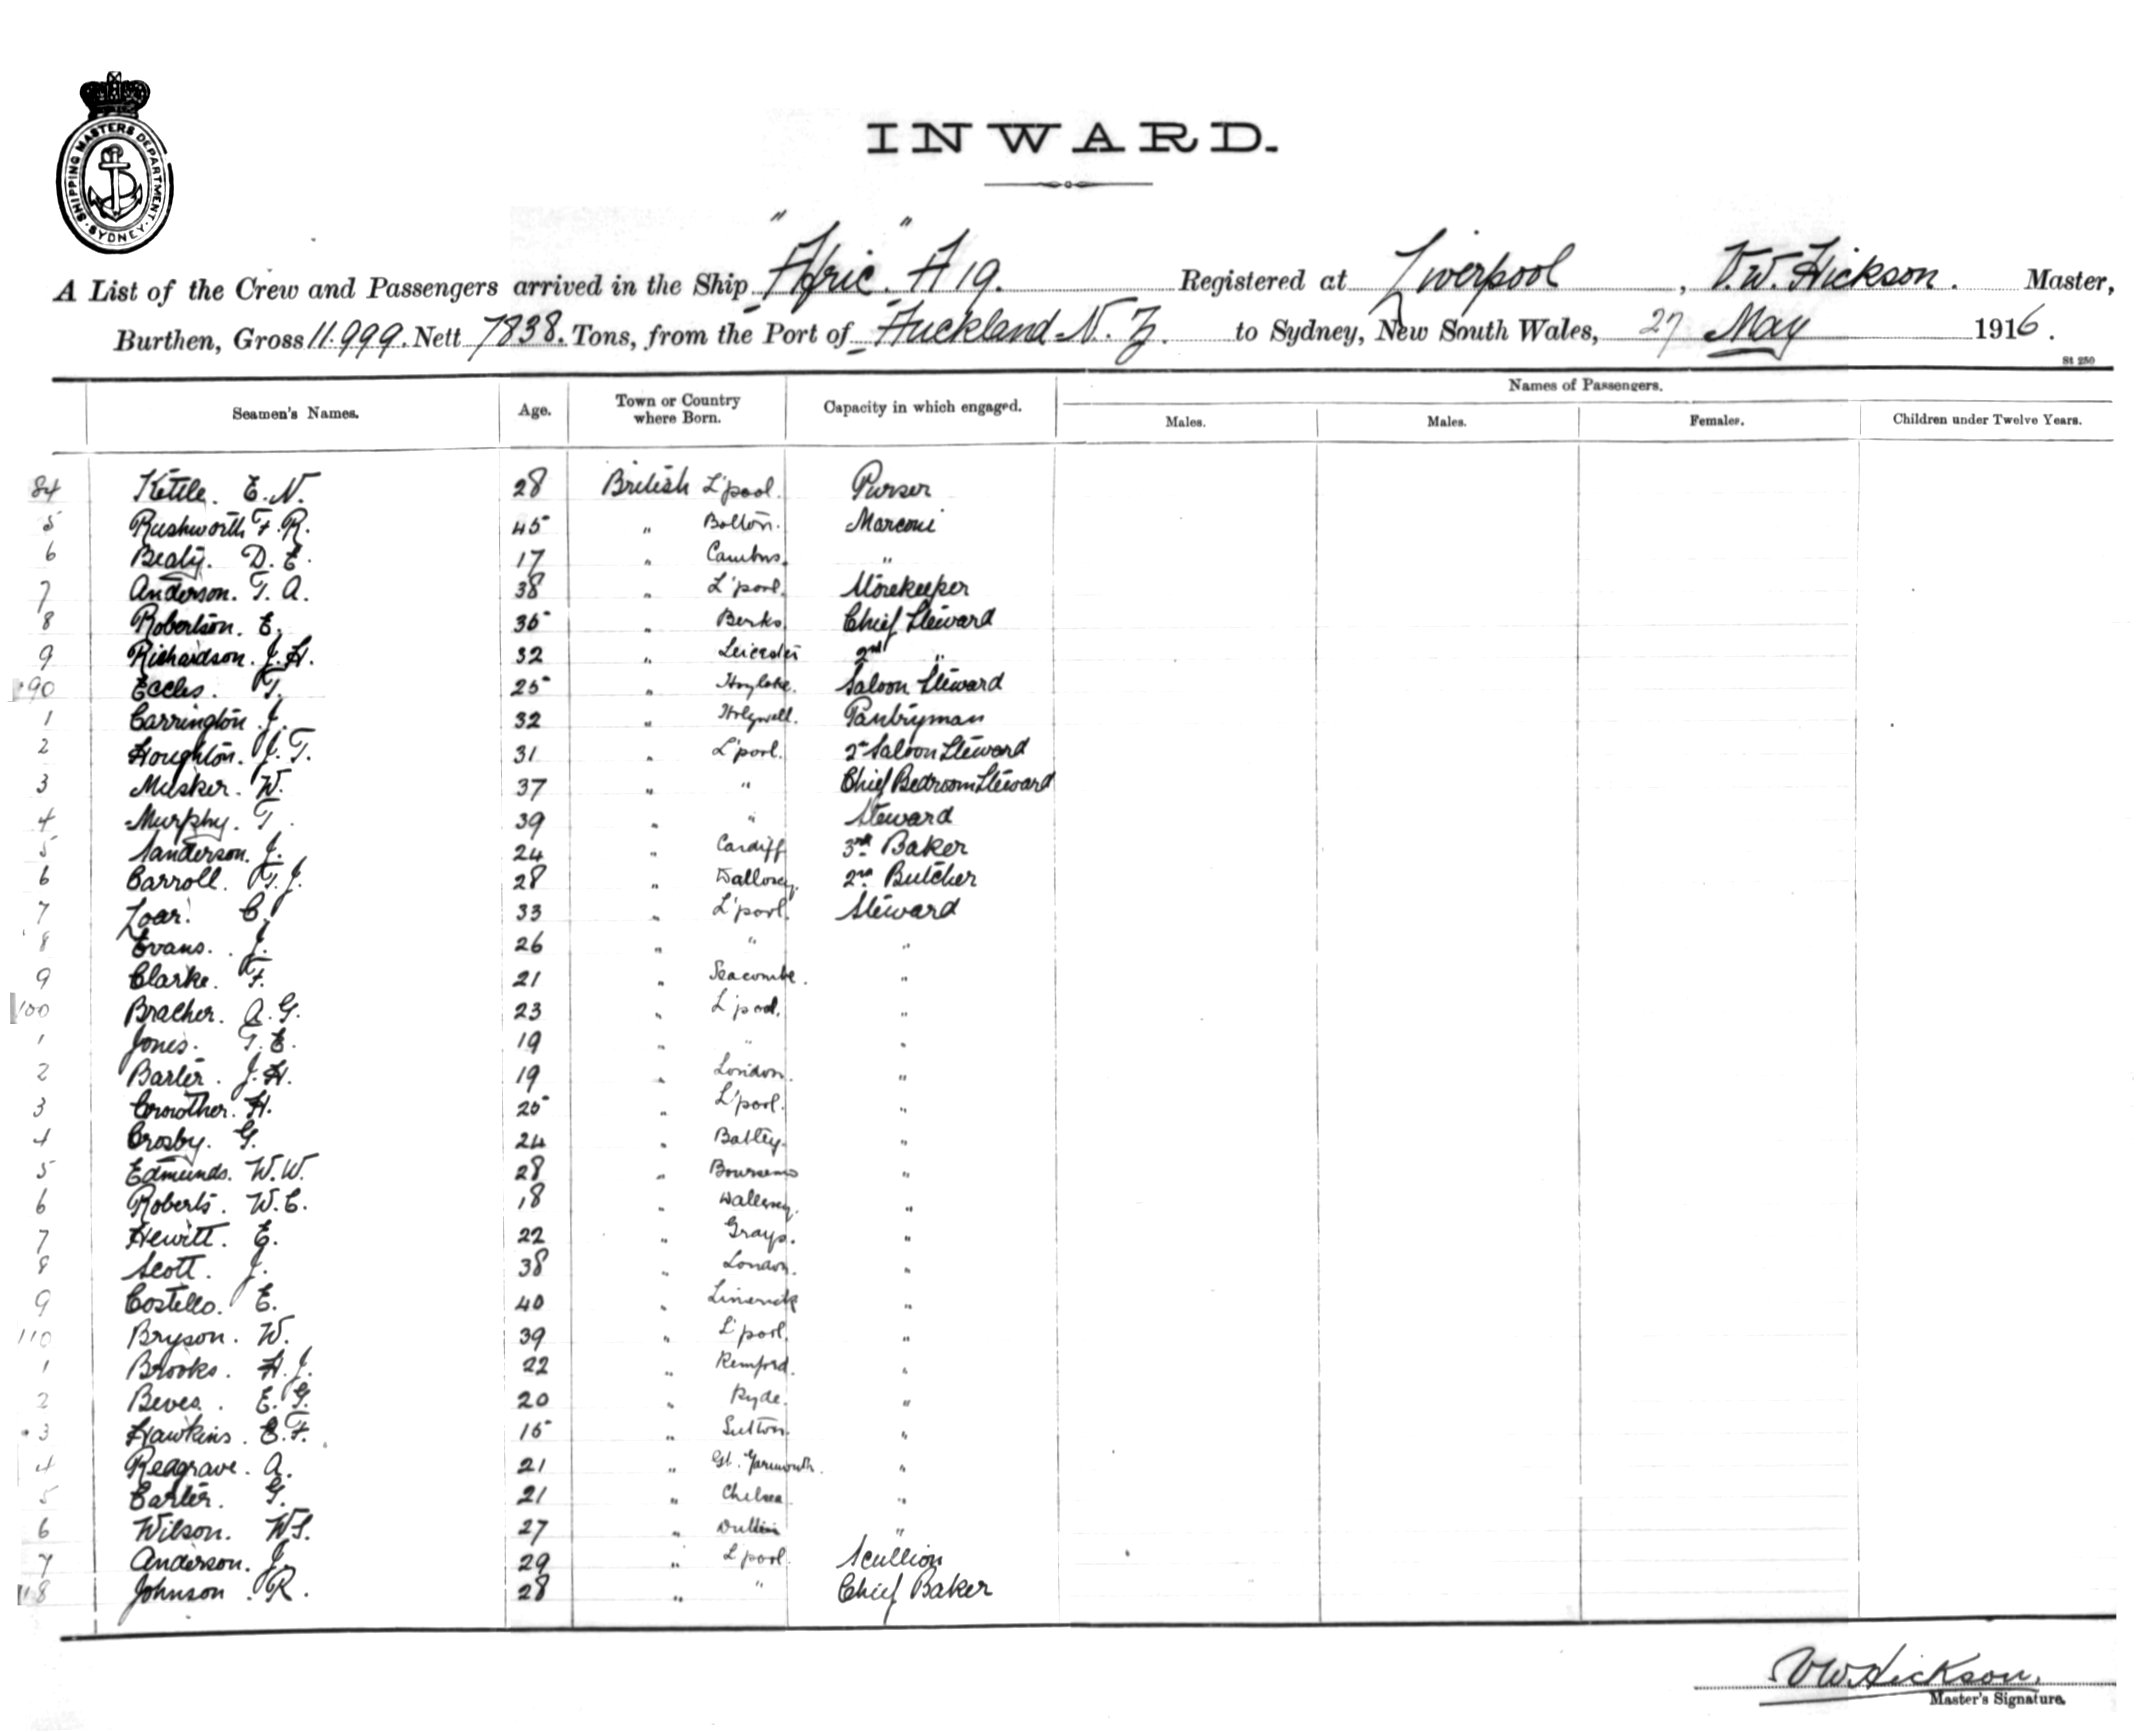 SHIPPING MASTERS DEPARTMENT. SYDNEY.
INWARD.
A List of the Crew and Passengers arrived in the Ship "Afric" A19. Registered at Liverpool, V.W. Hickson. Master,
Burthen, Gross 11.999. Nett 7838. Tons, from the Port of Auckland N.Z. to Sydney, New South Wales, 27 May 1916.
St 250
Names of Passengers.
Seamen's Names. Age. Town or Country where Born. Capacity in which engaged. Males. Males. Females. Children under Twelve Years.
84 Kettle. E.N. 28 British L'pool. Purser
5 Rushworth F.R. 45 " Bolton. Marconi
6 Beaty. D.E. 17 " "
7 Anderson. T.A. 38 " L'pool. Storekeeper
8 Robertson. E. 35 " Berks. Chief Steward
9 Richardson. J.H. 32 " Leicester 2nd "
90 Eccles. T. 25 " Hoylake. Saloon Steward
1 Carrington. J. 32 " Holywell. Pantryman
2 Houghton. J.T. 31 " L'pool. 2nd Saloon Steward
3 Musker. W. 37 " " Chief Bedroom Steward
4 Murphy. T. 39 " " Steward
5 Sanderson. J. 24 " Cardiff 3rd Baker
6 Carroll. T.J. 28 " Wallasey. 2nd Butcher
7 Loar. C. 33 " L'pool. Steward
8 Evans. J. 26 " " "
9 Clarke. F. 21 " Seacombe. "
100 Bracher. A.G. 23 " L'pool. "
1 Jones. T.E. 19 " " "
2 Barter. J.H. 19 " London. "
3 Crowther. H. 25 " L'pool. "
4 Crosby. G. 24 " Batley. "
5 Edmunds. W.W. 28 " "
6 Roberts. W.C. 18 " Wallasey. "
7 Hewitt. E. 22 " Grays. "
8 Scott. J. 38 " London. "
9 Costello. E. 40 " Limerick "
110 Bryson. W. 39 " L'pool. "
1 Brooks. H.J. 22 " Romford. "
2 Beves. E.G. 20 " Ryde. "
3 Hawkins. E.F. 15 " Sutton. "
4 Reagrave. A. 21 " Gt. Yarmouth. "
5 Carter. G. 21 " Chelsea "
6 Wilson. W.S. 27 " Dublin "
7 Anderson. J. 29 " L'pool. Scullion
118 Johnson. R. 28 " " Chief Baker
VW Hickson.
Master's Signature.